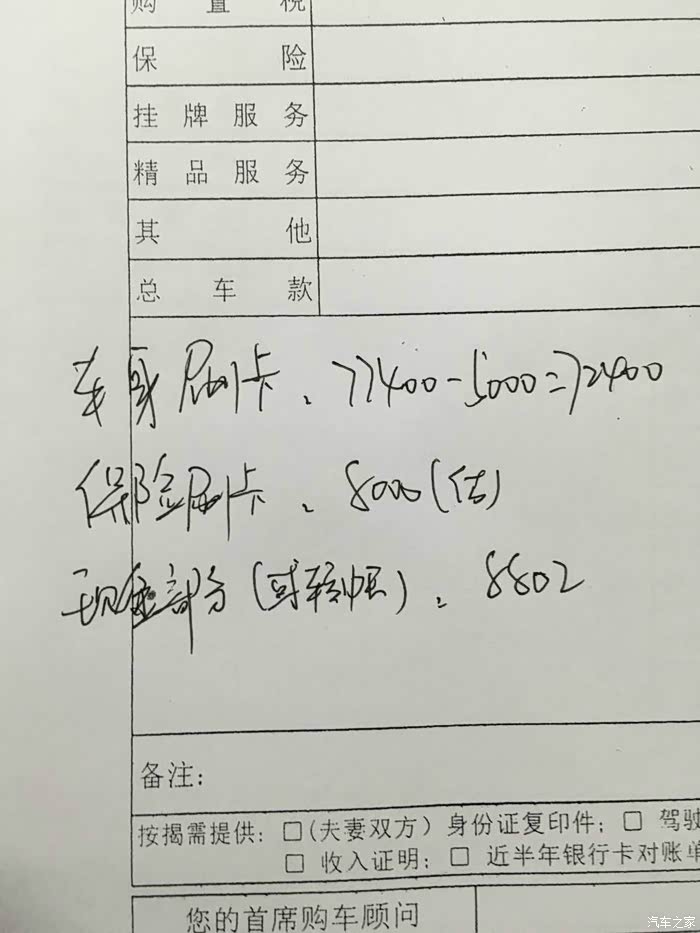 购置税
保险
挂牌服务
精品服务
其他
总车款
车身刷卡:77400-5000=72400
保险刷卡:8000(估)
现金部分(或转帐):8802
备注:
按揭需提供:□(夫妻双方)身份证复印件;□ 驾驶
□ 收入证明;□ 近半年银行卡对账单
您的首席购车顾问
汽车之家